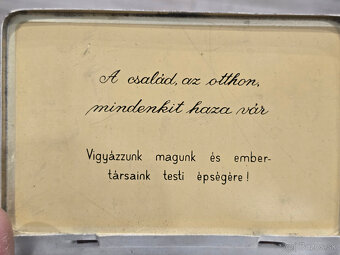 A család, az otthon,
mindenkit haza vár
Vigyázzunk magunk és ember-
társaink testi épségére!